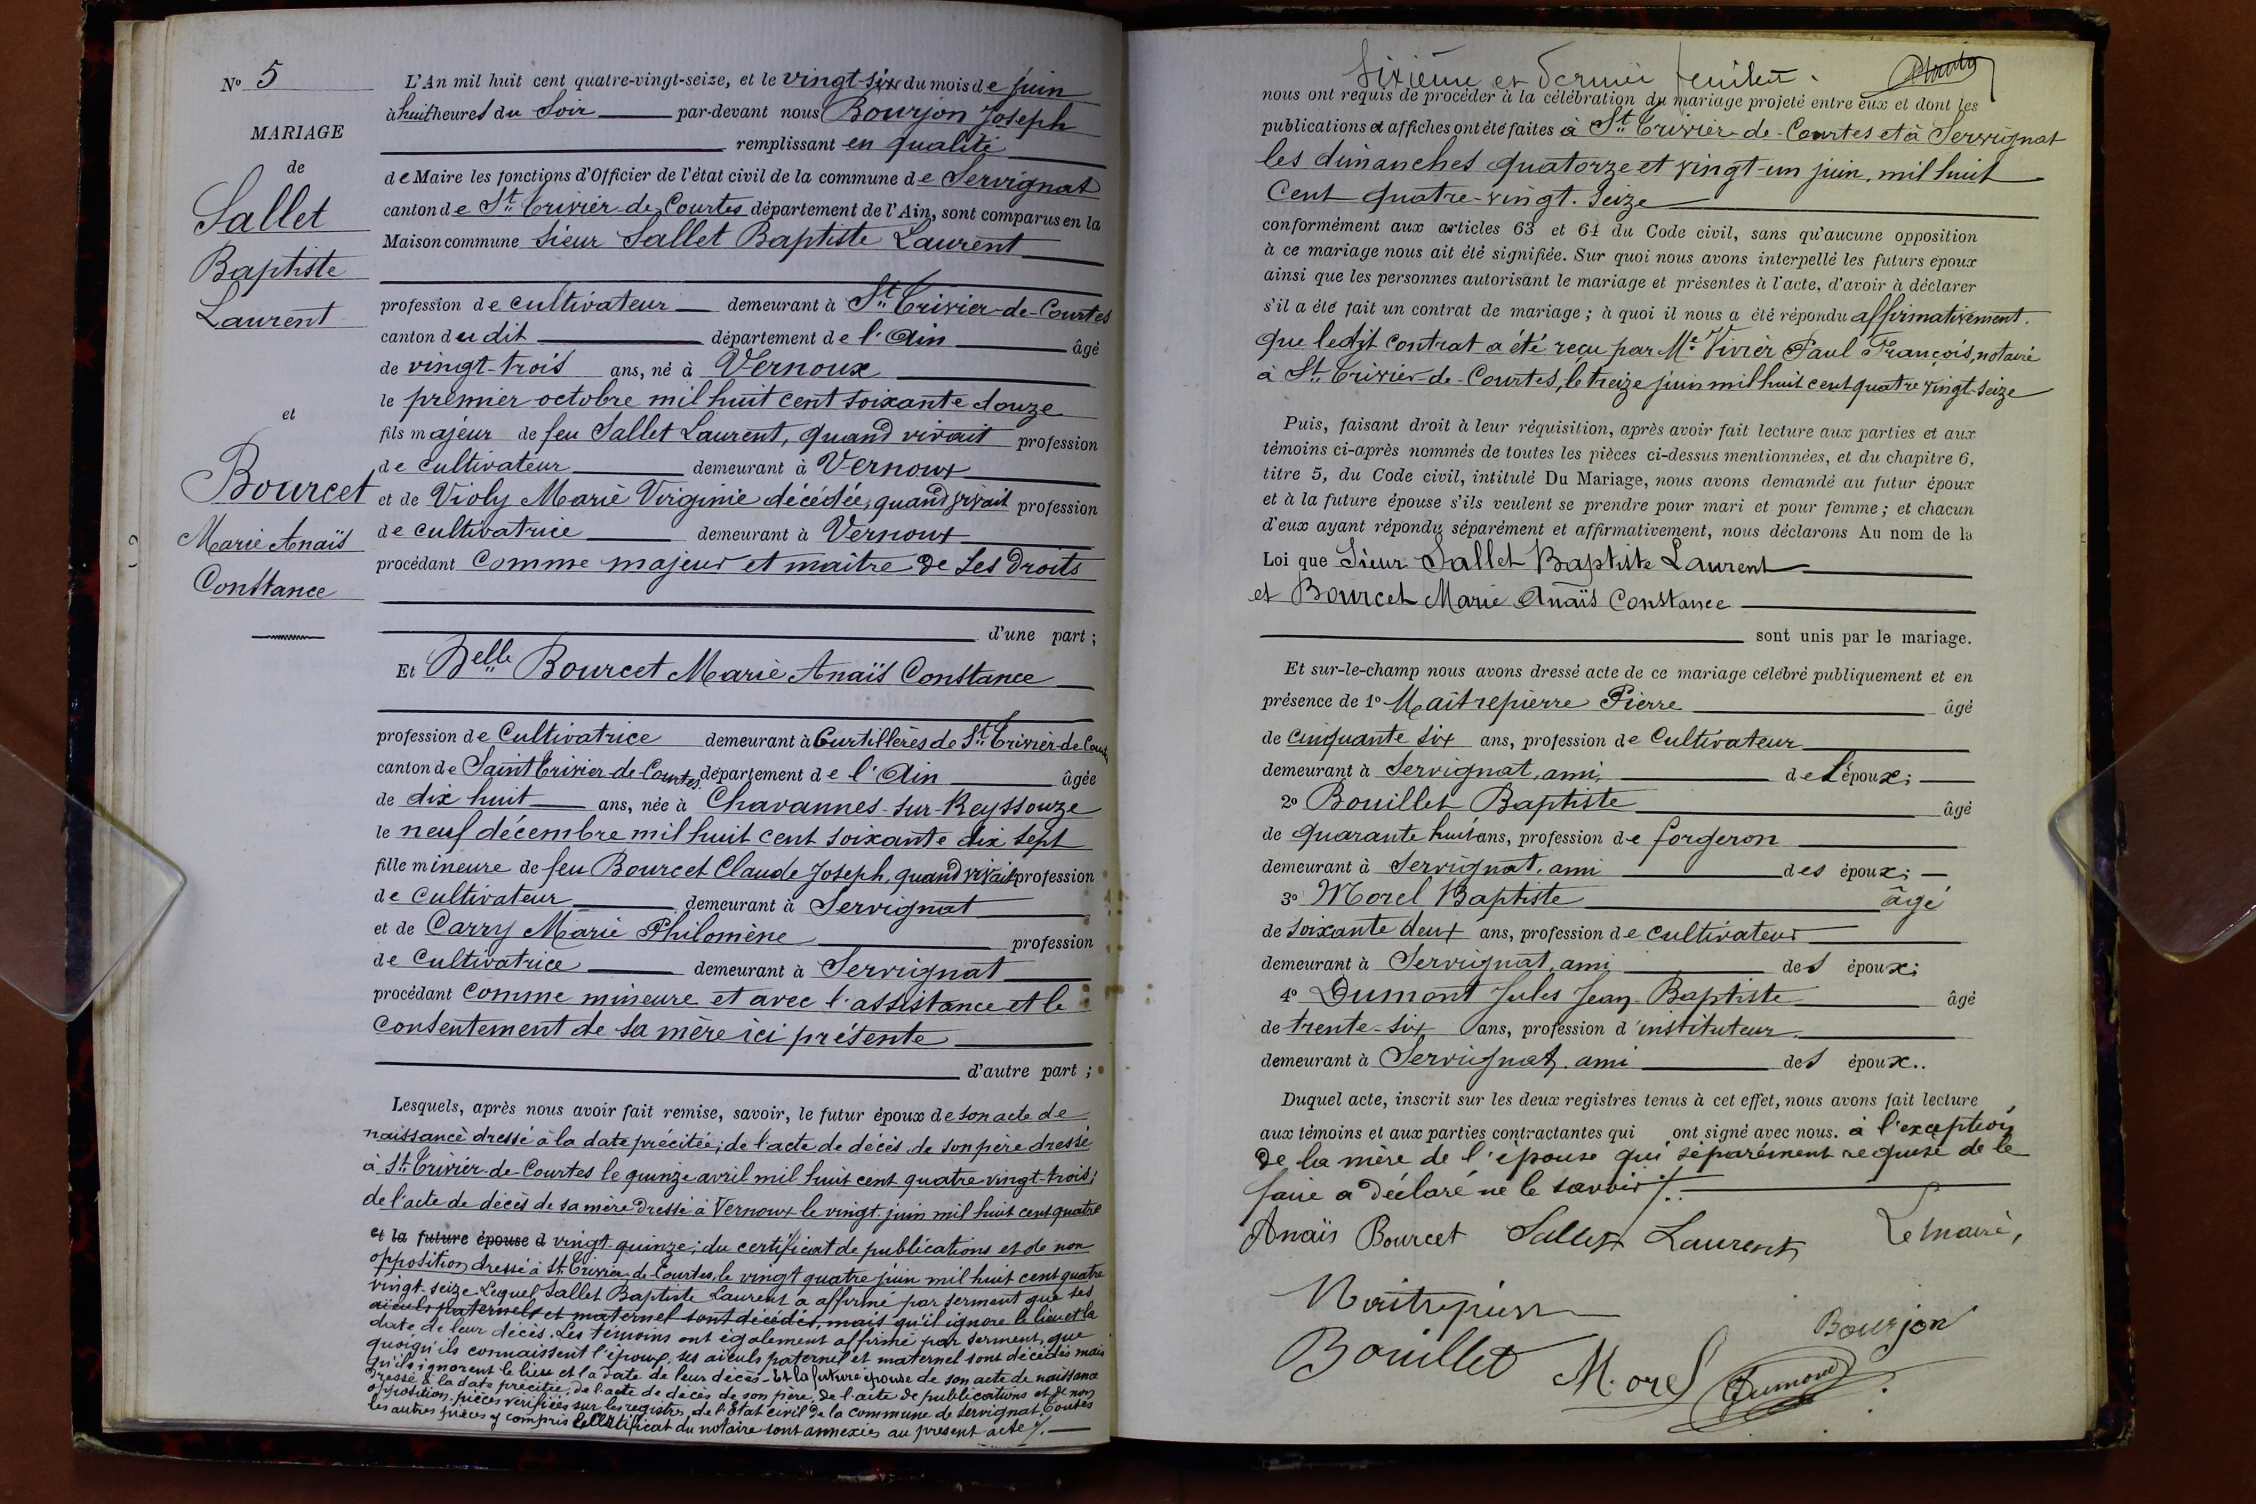 N° 5
MARIAGE
de
Sallet
Baptiste
Laurent
et
Bourcet
Marie Anaïs
Constance
L'An mil huit cent quatre-vingt-seize, et le vingt-six du mois de juin
à huit heures du soir par-devant nous Bourjon Joseph
remplissant en qualité
de Maire les fonctions d'Officier de l'état civil de la commune de Servignat
canton de St Trivier-de-Courtes département de l'Ain, sont comparus en la
Maison commune sieur Sallet Baptiste Laurent
profession de cultivateur demeurant à St Trivier-de-Courtes
canton du dit département de l'Ain âgé
de vingt-trois ans, né à Vernoux
le premier octobre mil huit cent soixante douze
fils majeur de feu Sallet Laurent, quand vivait profession
de cultivateur demeurant à Vernoux
et de Violy Marie Virginie décédée, quand vivait profession
de cultivatrice demeurant à Vernoux
procédant comme majeur et maître de ses droits
d'une part ;
Et Delle Bourcet Marie Anaïs Constance
profession de Cultivatrice demeurant à Curtillères de St Trivier-de-Court
canton de Saint Trivier-de-Courtes département de l'Ain âgée
de dix huit ans, née à Chavannes-sur-Reyssouze
le neuf décembre mil huit cent soixante dix sept
fille mineure de feu Bourcet Claude Joseph, quand vivait profession
de cultivateur demeurant à Servignat
et de Carry Marie Philomène profession
de Cultivatrice demeurant à Servignat
procédant comme mineure et avec l'assistance et le
consentement de sa mère ici présente
d'autre part ;
Lesquels, après nous avoir fait remise, savoir, le futur époux de son acte de
naissance dressé à la date précitée; de l'acte de décès de son père dressé
à St Trivier-de-Courtes le quinze avril mil huit cent quatre vingt-trois;
de l'acte de décès de sa mère dressé à Vernoux le vingt juin mil huit cent quatre
et la future épouse d vingt-quinze; du certificat de publications et de non
opposition dressé à St Trivier-de-Courtes, le vingt quatre juin mil huit cent quatre
vingt-seize. Lequel Sallet Baptiste Laurent a affirmé par serment que ses
aïeuls paternels et maternel sont décédés, mais qu'il ignore le lieu et la
date de leur décès. Les témoins ont également affirmé par serment, que
quoiqu'ils connaissent l'époux, ses aïeuls paternel et maternel sont décédés mais
qu'ils ignorent le lieu et la date de leur décès - Et la future épouse de son acte de naissance
dressé à la date précitée; de l'acte de décès de son père, de l'acte de publications et de non
opposition, pièces vérifiées sur les registres de l'Etat civil de la commune de Servignat. Toutes
les autres pièces y compris le certificat du notaire sont annexées au présent acte /.
Sixième et dernier feuillet.
nous ont requis de procéder à la célébration du mariage projeté entre eux et dont les
publications et affiches ont été faites à St Trivier-de-Courtes et à Servignat
les dimanches quatorze et vingt-un juin, mil huit
cent quatre-vingt-seize
conformément aux articles 63 et 64 du Code civil, sans qu'aucune opposition
à ce mariage nous ait été signifiée. Sur quoi nous avons interpellé les futurs époux
ainsi que les personnes autorisant le mariage et présentes à l'acte, d'avoir à déclarer
s'il a été fait un contrat de mariage ; à quoi il nous a été répondu affirmativement.
Que ledit contrat a été reçu par Me Vivier Paul François, notaire
à St Trivier-de-Courtes, le treize juin mil huit cent quatre vingt-seize
Puis, faisant droit à leur réquisition, après avoir fait lecture aux parties et aux
témoins ci-après nommés de toutes les pièces ci-dessus mentionnées, et du chapitre 6,
titre 5, du Code civil, intitulé Du Mariage, nous avons demandé au futur époux
et à la future épouse s'ils veulent se prendre pour mari et pour femme ; et chacun
d'eux ayant répondu séparément et affirmativement, nous déclarons Au nom de la
Loi que Sieur Sallet Baptiste Laurent
et Bourcet Marie Anaïs Constance
sont unis par le mariage.
Et sur-le-champ nous avons dressé acte de ce mariage célébré publiquement et en
présence de 1° Maitrepierre Pierre âgé
de cinquante six ans, profession de Cultivateur
demeurant à Servignat, ami, de l'époux;
2° Bouillet Baptiste âgé
de quarante huit ans, profession de forgeron
demeurant à Servignat, ami des époux;
3° Morel Baptiste âgé
de soixante deux ans, profession de cultivateur
demeurant à Servignat, ami des époux;
4° Dumont Jules Jean-Baptiste âgé
de trente-six ans, profession d'instituteur
demeurant à Servignat, ami des époux..
Duquel acte, inscrit sur les deux registres tenus à cet effet, nous avons fait lecture
aux témoins et aux parties contractantes qui ont signé avec nous. à l'exception
de la mère de l'épouse qui séparément requise de le
faire a déclaré ne le savoir /.
Anaïs Bourcet Sallet Laurent Le maire,
Maitrepierre
Bourjon
Bouillet Morel Dumont